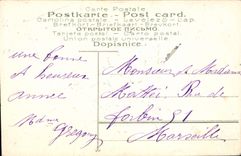 Carte Postale
Postkarte - Post card.
Cartolina postale - Levelező-Lap.
Brefkort - Briefkaart - Brevkort
ОТКРЫТОЕ ПИСЬМО.
Tarjeta postal - Cartão postal
Union postale universelle
Dopisnice
une bonne
et heureuse
année
Monsieur et Madame
Rue de
Forbin 51
Marseille